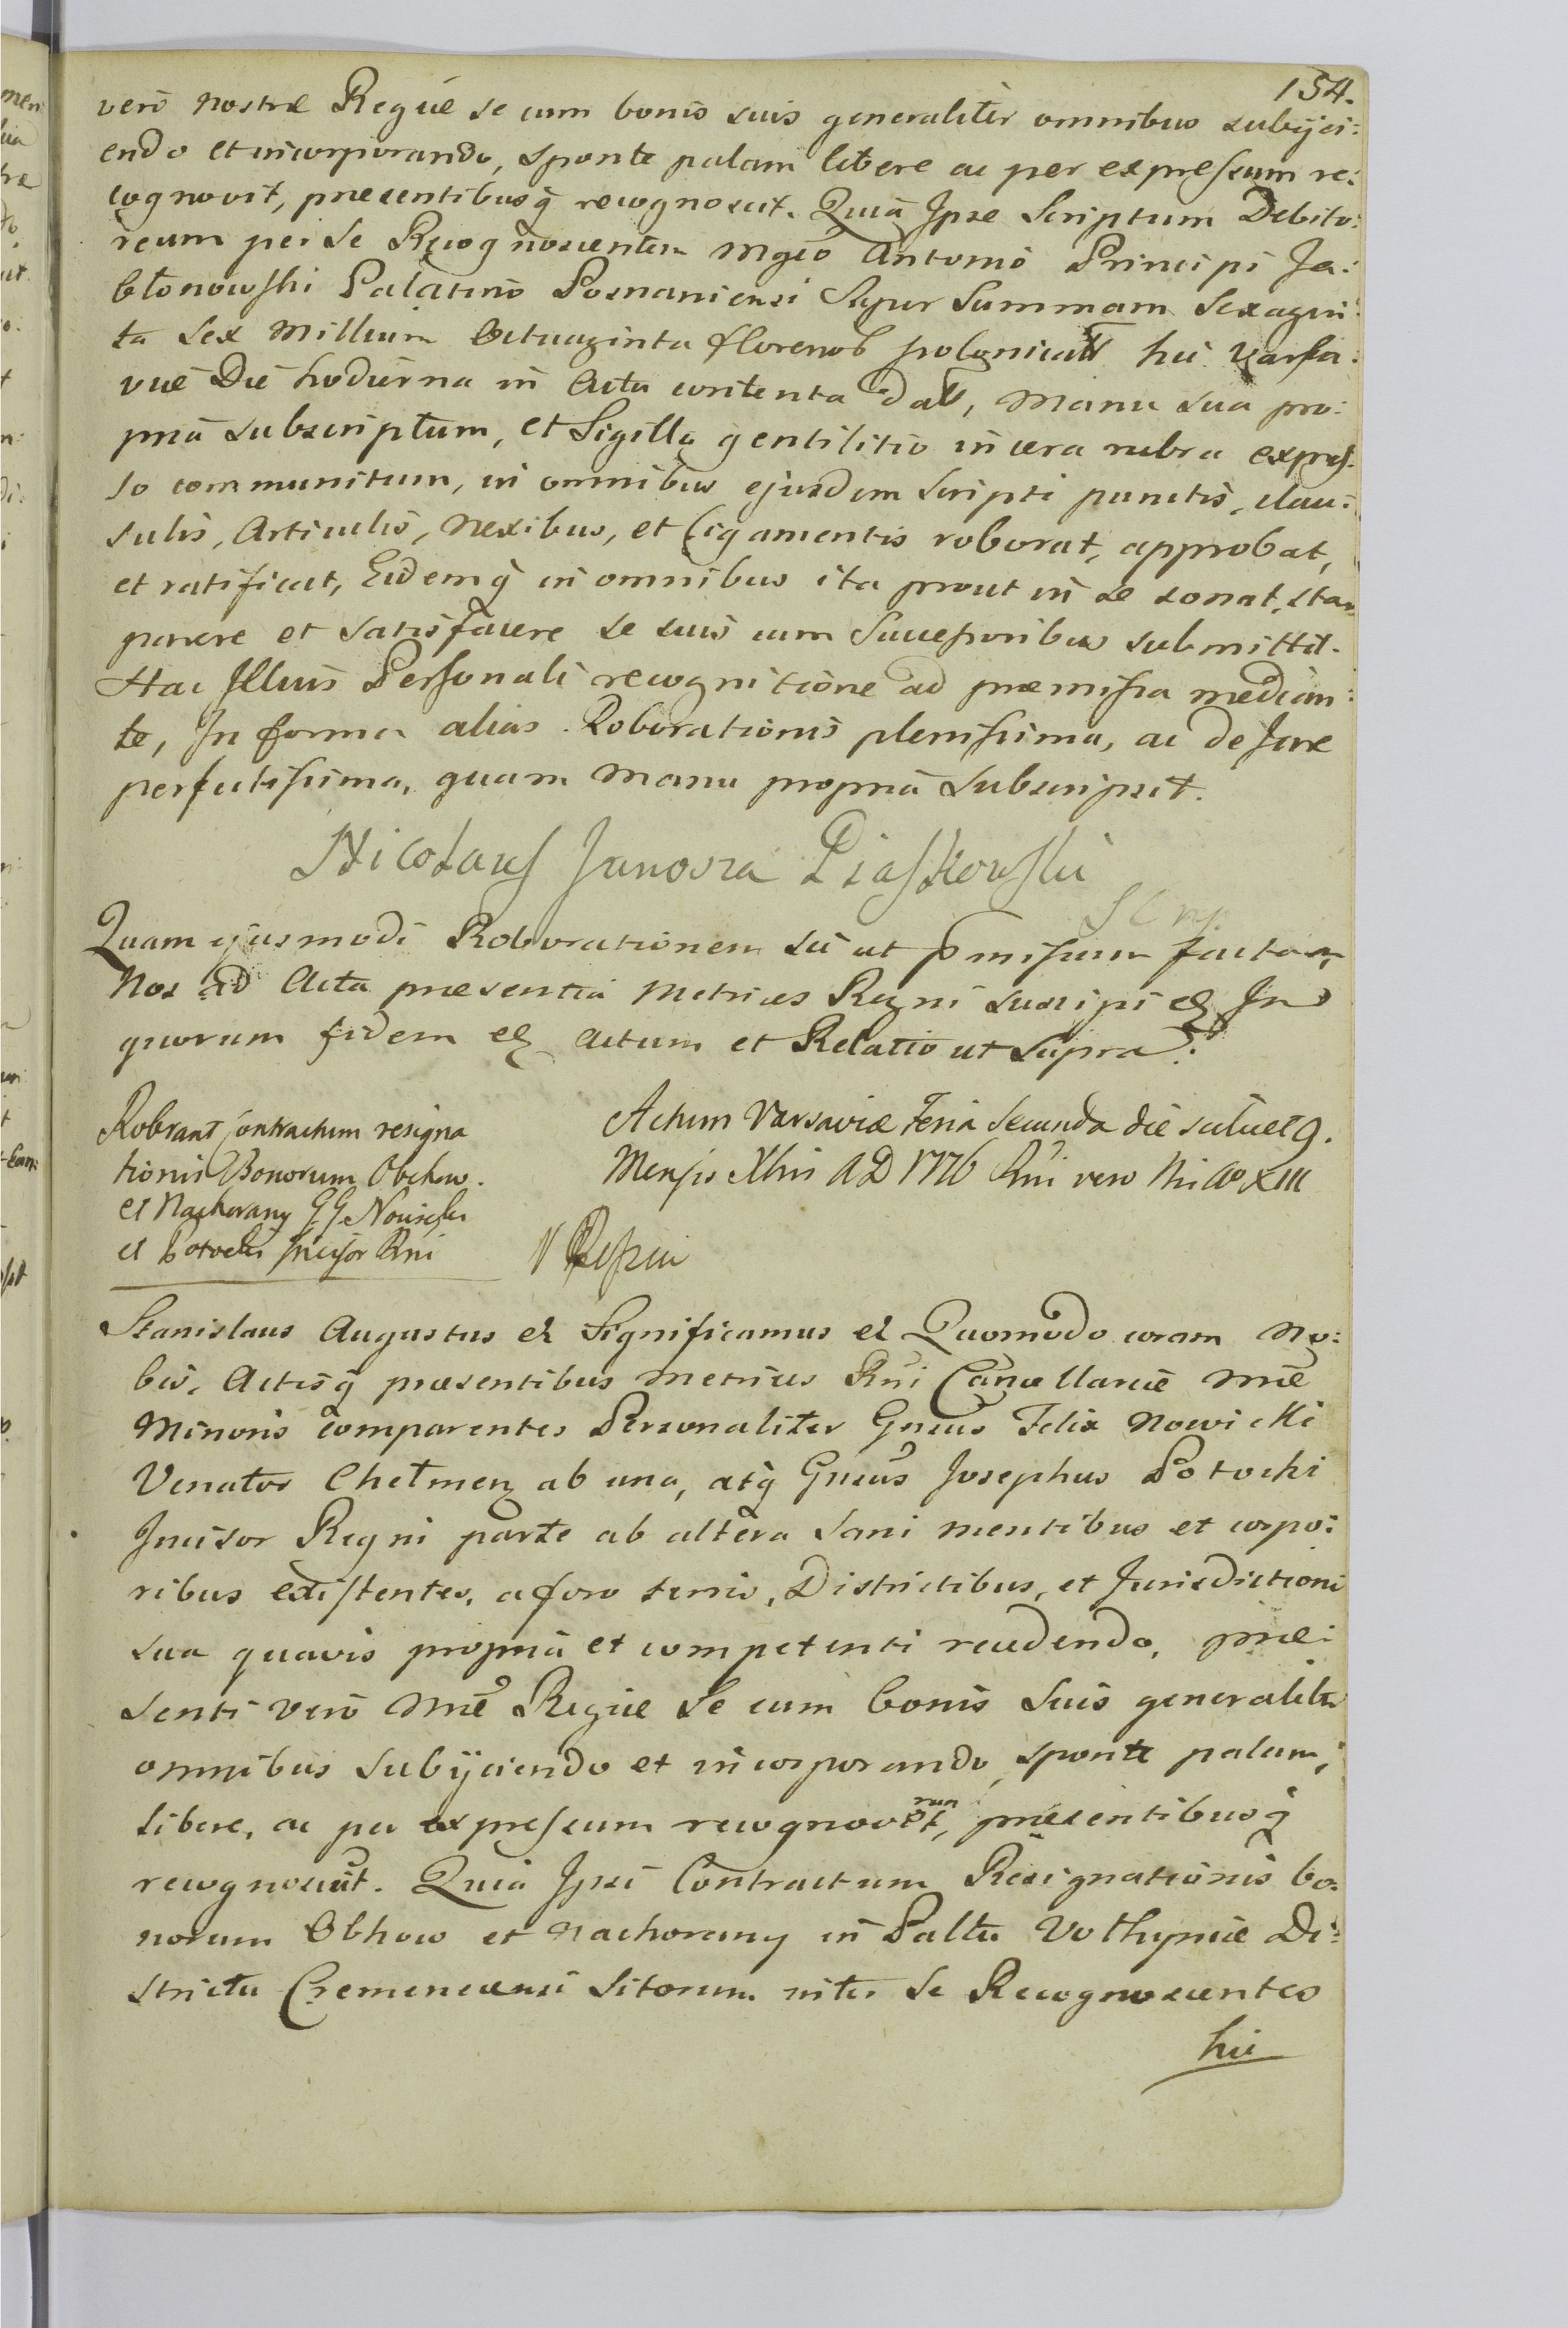 154.
vero nostræ Regiæ se cum bonis suis generaliter omnibus subijci:
endo et incorporando, sponte palam libere ac per expressum re:
cognovit, præsentibusq̀ recognoscit. Quia Ipse Scriptum Debito:
reum per se Recognoscentem Mgco Antonio Principi Ja:
błonowski Palatino Posnaniensi Super Summam Sexagin:
ta Sex Millium Octuaginta florenos polonica hic Varsa:
viæ Die hodierna in Actu contenta dat, Manu sua pro:
pria subscriptum, et Sigillo gentilitio in cera rubra expres:
so communitum, in omnibus ejusdem scripti punctis, clau:
sulis, Articulis, Nexibus, et Ligamentis roborat, approbat,
et ratificat, Eidemq̀ in omnibus ita prout in se sonat, sta
parere et satisfacere se suis cum Successoribus submittit.
Hac Illius Personali recognitione ad præmissa median:
te, In forma alias Roborationis plenissima, ac de Jure
perfectissima, quam Manu propria Subscripsit.
Nicolaus Junosza Piaskowski
Quam ejusmodi Roborationem sic ut pmissum factam,
Nos ad Acta præsentia Metrices Regni suscipi In
quorum fidem Actum et Relatio ut Supra.
Robrant Contractum resigna
tionis Bonorum Obchow.
et Nachorany GG. Nowicki
et Potocki Incisor Rni
Actum Varsaviæ Feria Secunda die scilicet 9.
Mensis Xbris AD 1776 Rni vero Ni Ao XIII
Stanislaus Augustus et Significamus et Quomodo coram No:
bis, Actisq̀ præsentibus Metrices Rni Cancellariæ Nræ
Minoris comparentes Personaliter Gnsus Felix Nowicki
Venator Chełmen ab una, atq̀ Gnsus Josephus Potocki
Incisor Regni parte ab altera Sani mentibus et corpo:
ribus existentes, a foro terris, Districtibus, et Jurisdictioni
sua quavis propria et competenti recedendo, præ:
senti vero Nræ Regiæ Se cum bonis suis generaliter
omnibus subijciendo et incorporando, sponte palam,
libere, ac per expressum recognoverunt, præsentibusq̀
recognoscunt. Quia Ipsi Contractum Resignationis bo:
norum Obhow et Nachorany in Paltu Vołhyniæ Di:
strictu Cremenecensi Sitorum inter Se Recognoscentes
hic